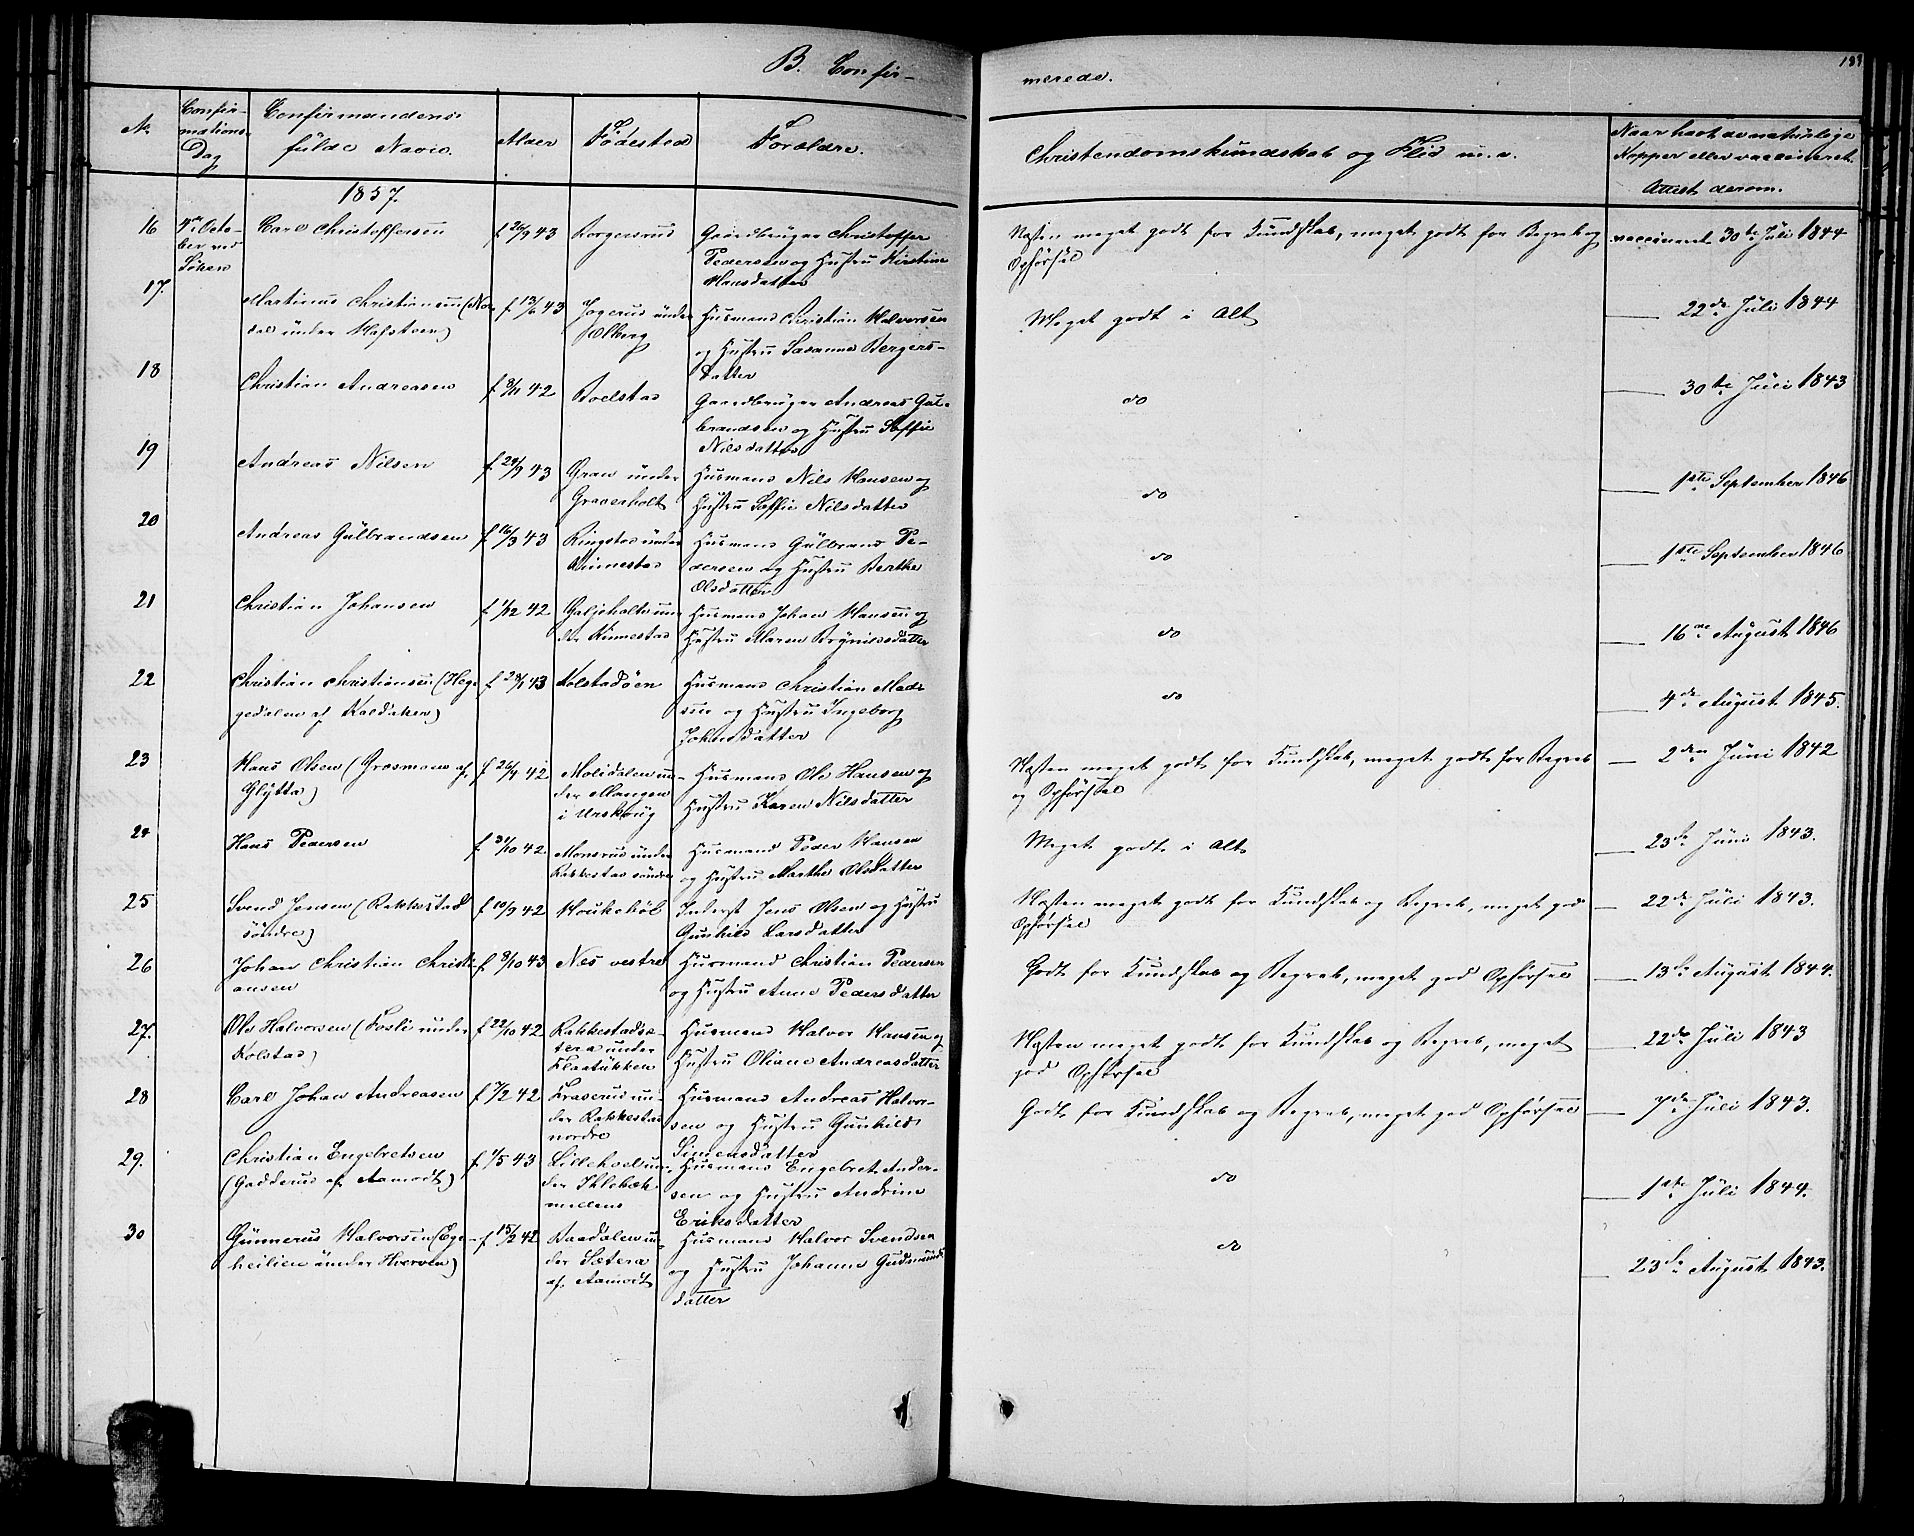 B. Confir-
merede.
189
No
Confir-
mations
Dag
Confirmandens
fulde Navn.
Alder
Födested
Forældre.
Christendomskundskab og Flid m. v.
Naar havt de naturlige
Kopper eller vaccineret.
Attest derom.
1857.
16
4de Octo-
ber ved
Söken
Carl Christoffersen
f. 26/9 43
Borgersrud
Gaardbruger Christoffer
Pedersen og Hustru Kirstine
Hansdatter
Næsten meget godt for Kundskab, meget godt for Begreb og
Opförsel
vaccineret 30te Juli 1844
17.
Martinus Christiansen (Nor-
dal under Hafsteen)
f. 13/6 43
Jogerud under
Ælberg
Husmand Christian Halvorsen
og Hustru Susanne Bergers-
datter
Meget godt i Alt
22de Juli 1844
18
Christian Andreasen
f. 3/11 42
Boelstad
Gaardbruger Andreas Gul-
brandsen og Hustru Soffie
Nilsdatter
do
30te Juli 1843
19
Andreas Nilsen
f. 29/9 43
Gran under
Graaerholt
Husmand Nils Hansen og
Hustru Soffie Nilsdatter
do
1ste September 1846
20
Andreas Gulbrandsen
f. 16/3 43
Ringstad under
Kinnestad
Husmand Gulbrand Pe-
dersen og Hustru Berthe
Olsdatter
do
1ste September 1846
21
Christian Johansen
f. 1/12 42
Galjeholt un-
der Kinnestad
Husmand Johan Hansen og
Hustru Maren Brynildsdatter
do
16de August 1846
22
Christian Christiansen (Heg-
gedalen af Kaldaker)
f. 28/1 43
Kolstadöen
Husmand Christian Mad-
sen og Hustru Ingeborg
Johnsdatter
do
4de August 1845.
23
Hans Olsen (Grasmoen af
Glytta)
f. 26/4 42
Molidalen un-
der Mangen
i Urskoug
Husmand Ole Hansen og
Hustru Karen Nilsdatter
Næsten meget godt for Kundskab, meget godt for Begreb
og Opförsel
2den Juni 1842
24
Hans Pedersen
f. 31/10 42
Monsrud under
Rakkestad söndre
Husmand Peder Hansen
og Hustru Marthe Olsdatter
Meget godt i Alt
23de Juni 1843.
25
Svend Jensen (Rakkestad
söndre)
f. 10/9 42
Houkehöl
Inderst Jens Olsen og Hustru
Gunhild Larsdatter
Næsten meget godt for Kundskab og Begreb, meget god
Opförsel
22de Juli 1843.
26
Johan Christian Christi-
ansen
f. 3/10 43
Nes vestre
Husmand Christian Pedersen
og Hustru Anne Pedersdatter
Godt for Kundskab og Begreb, meget god Opförsel
13de August 1844.
27.
Ole Halvorsen (Fosli under
Kolstad)
f. 22/10 42
Rakkestadsæ-
tera under
Flaatükken
Husmand Halvor Hansen og
Hustru Oliane Andreasdatter
Næsten meget godt for Kundskab og Begreb, meget
god Opförsel
22de Juli 1843
28
Carl Johan Andreasen
f. 7/2 42
Fraserud un-
der Rakkestad
nordre
Husmand Andreas Halvor-
sen og Hustru Gunhild
Simensdatter
Godt for Kundskab og Begreb, meget god Opförsel
7de Juli 1843.
29.
Christian Engebretsen
(Gadderud af Aamodt)
f. 1/5 43
Lillehoel un-
der Iklebæk
medens
Husmand Engebret Ander-
sen og Hustru Andrine
Eriksdatter
do
1ste Juli 1844.
30
Gunnerus Halvorsen (Ege-
heilien under Hverven)
f. 15/2 42
Baadalen un-
der Sætera
af Aamodt
Husmand Halvor Svendsen
og Hustru Johanne Gudmunds
datter
do
23de August 1843.